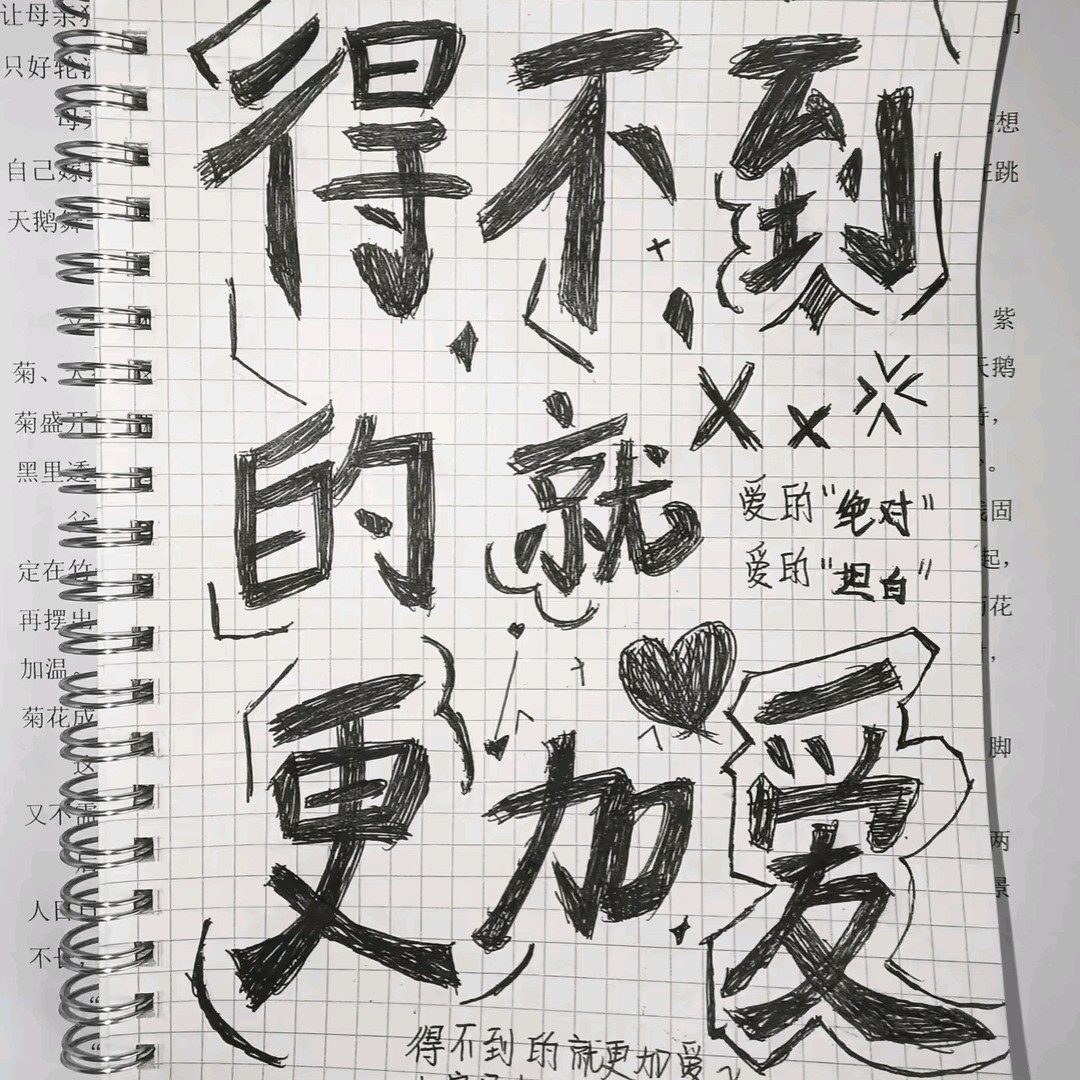 得不到
的就
爱的“绝对”
爱的“坦白”
更加爱
得不到的就更加爱
让母亲
只好轮
自己嫁
天鹅舞
菊、天
菊盛开
黑里透
定在竹
再摆出
加温。
菊花成
这
又不需
人
不
们
想
跳
紫
天鹅
固
起，
花
脚
两
景